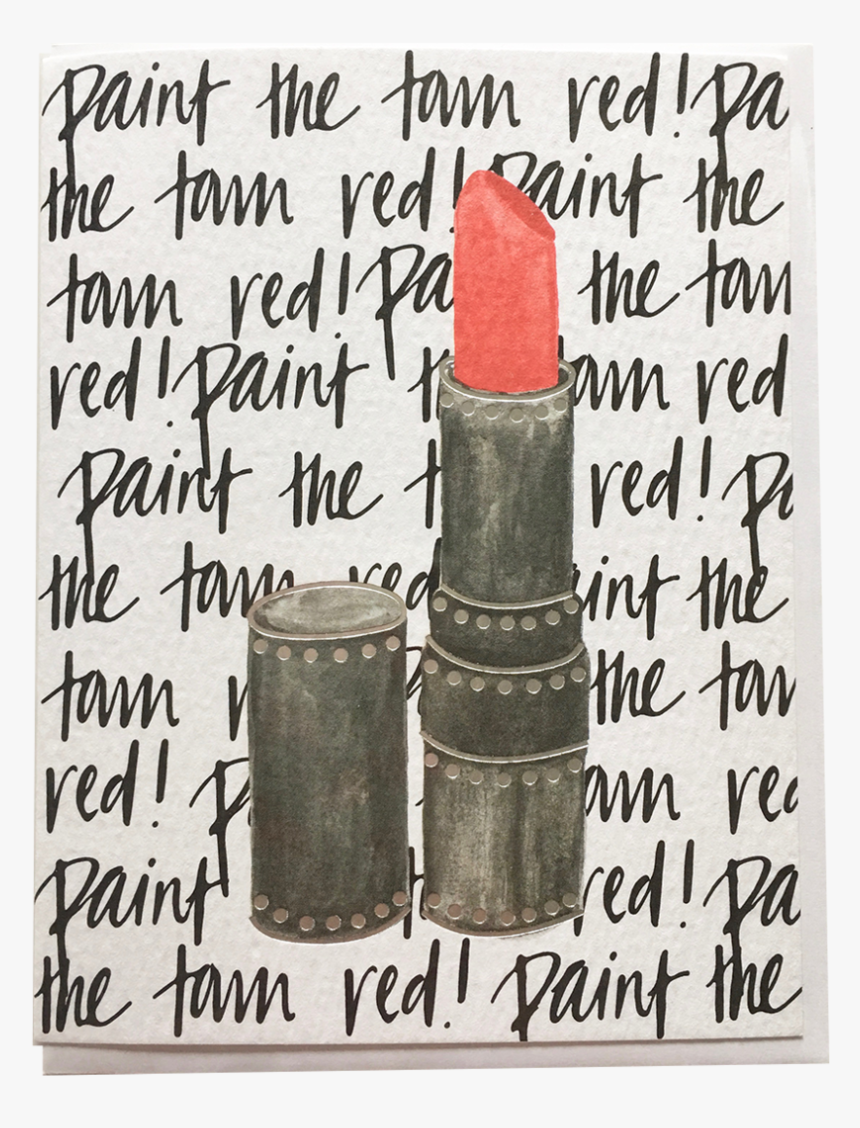 paint the town red! pa
the town red! paint the
town red! pa the tow
red! paint t own red
paint the t red! pa
the town red int the
town r the tow
red! p own re
paint red! pa
the town red! paint the